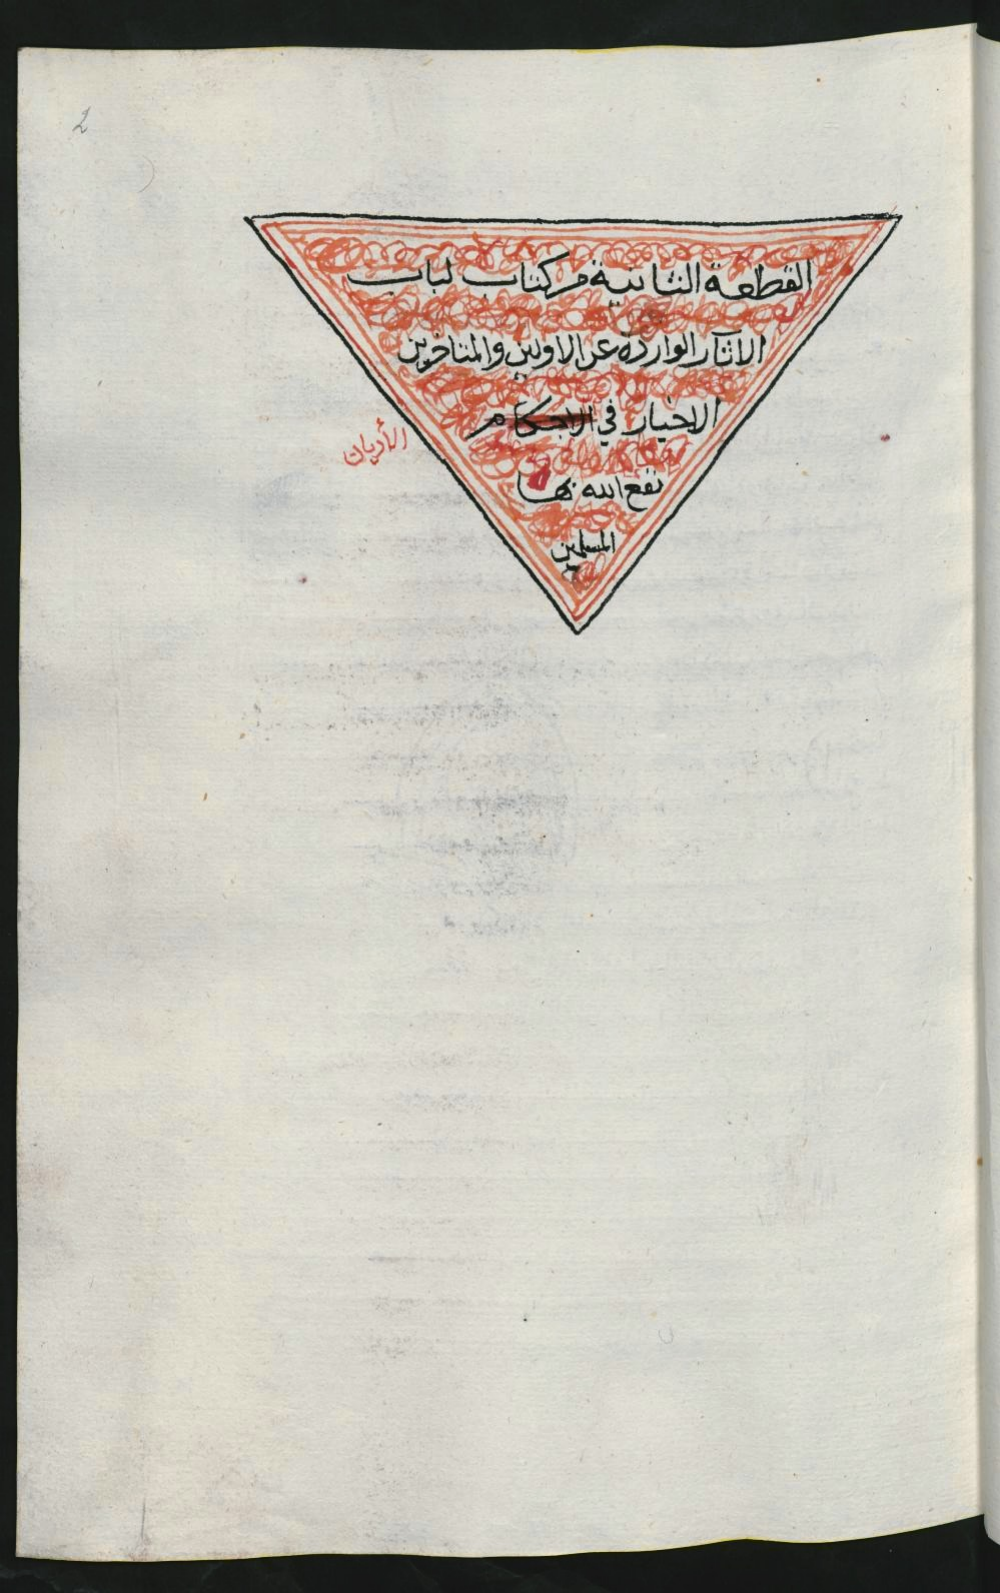 2
القطعة الثانية من كتاب لباب
الاثار الواردة عن الاولين والمتاخرين
الاخيار في الاحكام
الأديان
نفع الله بها
المسلمين